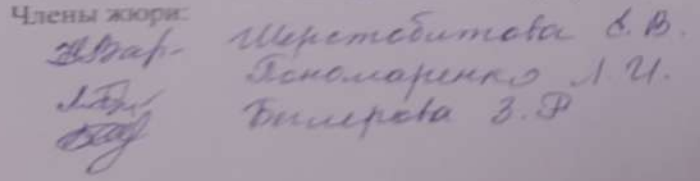 Члены жюри:
Шерстобитова Е. В.
Пономаренко Л. И.
З. Р